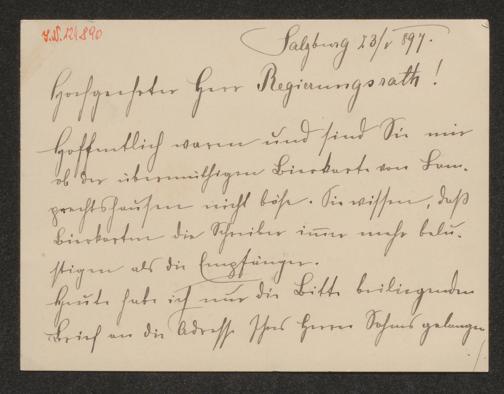 J.N. 121890
Salzburg 23/V 897.
Hochgeehrter Herr Regierungsrath!
Hoffentlich waren und sind Sie mir
ob der übermüthigen Bierkarte von Lam-
prechtshausen nicht böse. Sie wissen, daß
Bierkarten die Schreiber immer mehr belu-
stigen als die Empfänger.
Heute habe ich nur die Bitte beiliegenden
Brief an die Adresse Ihres Herrn Sohnes gelangen